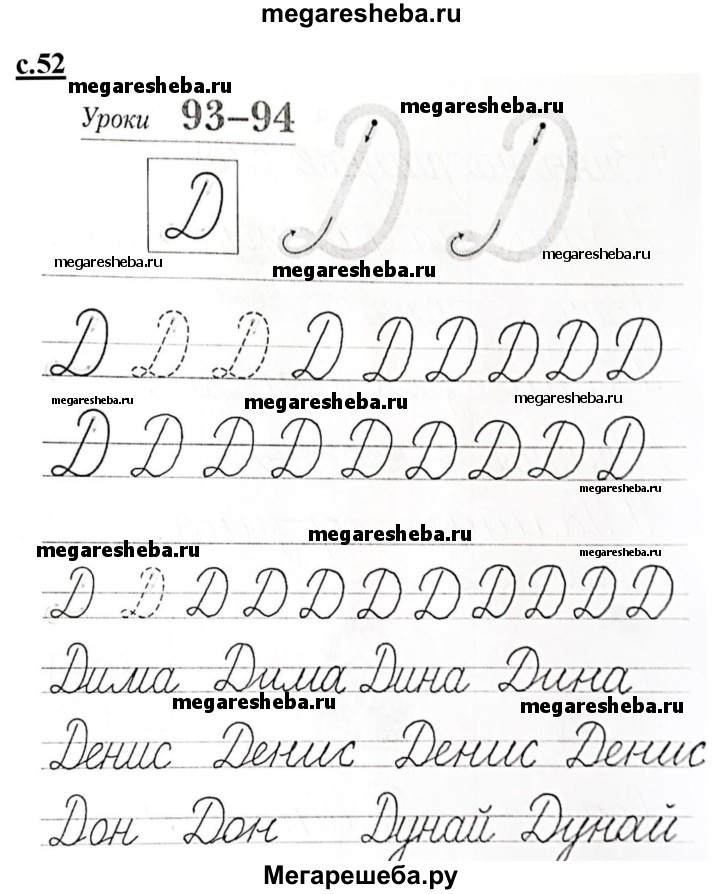 megaresheba.ru
с.52
megaresheba.ru
Уроки 93–94
megaresheba.ru
Д Д Д
megaresheba.ru
megaresheba.ru
megaresheba.ru
Д Д Д Д Д Д Д Д Д
megaresheba.ru
megaresheba.ru
megaresheba.ru
Д Д Д Д Д Д Д Д Д
megaresheba.ru
megaresheba.ru
megaresheba.ru
megaresheba.ru
Д Д Д Д Д Д Д Д Д Д Д
Дима Дима Дина Дина
megaresheba.ru
megaresheba.ru
Денис Денис Денис Денис
Дон Дон Дунай Дунай
Мегарешеба.ру